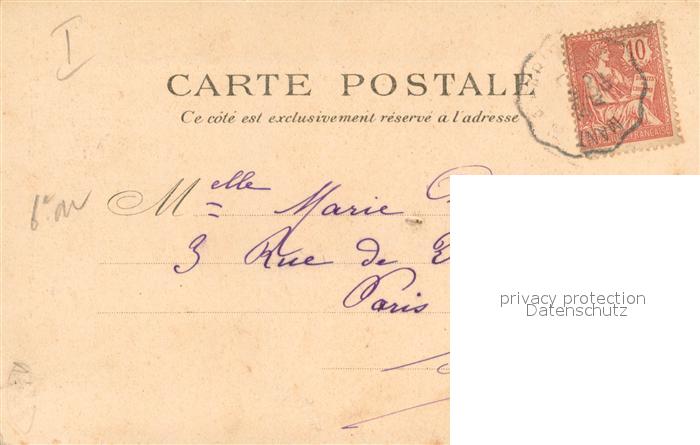 I
10
CARTE POSTALE
Ce côté est exclusivement réservé à l'adresse
FRANÇAISE
Melle Marie
3 Rue de
Paris
privacy protection
Datenschutz